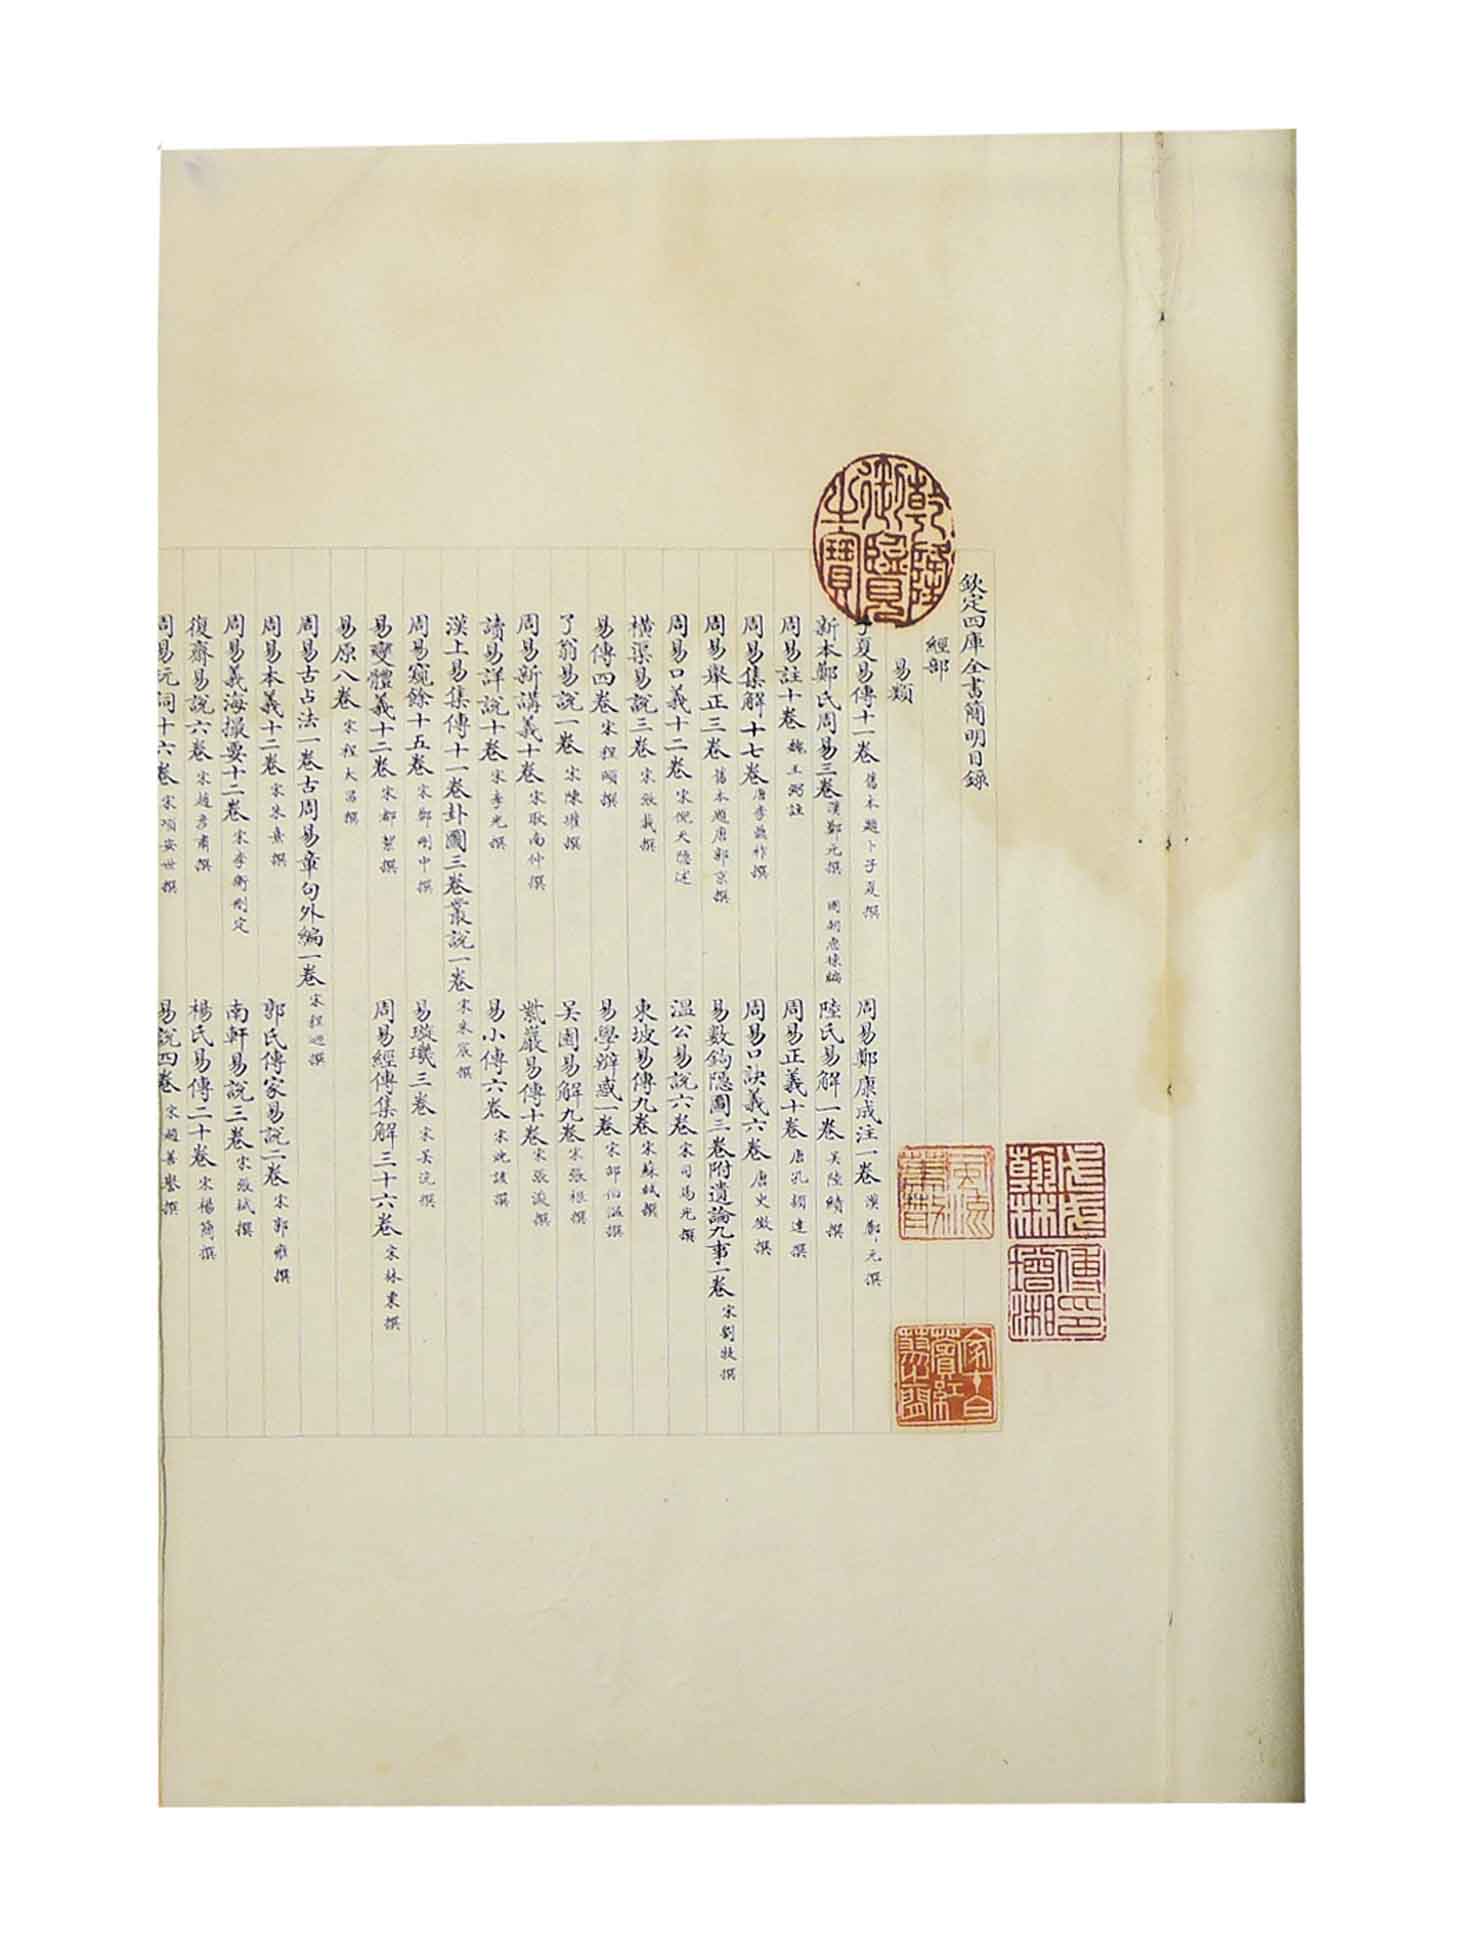 欽定四庫全書簡明目錄
經部
易類
子夏易傳十一卷 舊本題卜子夏撰 周易鄭康成注一卷 漢鄭元撰
新本鄭氏周易三卷 漢鄭元撰 國朝惠棟編 陸氏易解一卷 吳陸績撰
周易註十卷 魏王弼註 周易正義十卷 唐孔穎達撰
周易集解十七卷 唐李鼎祚撰 周易口訣義六卷 唐史徵撰
周易舉正三卷 舊本題唐郭京撰 易數鈎隱圖三卷附遺論九事一卷 宋劉牧撰
周易口義十二卷 宋倪天隱述 溫公易說六卷 宋司馬光撰
橫渠易說三卷 宋張載撰 東坡易傳九卷 宋蘇軾撰
易傳四卷 宋程頤撰 易學辨惑一卷 宋邵伯溫撰
了翁易說一卷 宋陳瓘撰 吳園易解九卷 宋張根撰
周易新講義十卷 宋耿南仲撰 紫巖易傳十卷 宋張浚撰
讀易詳說十卷 宋李光撰 易小傳六卷 宋沈該撰
漢上易集傳十一卷卦圖三卷叢說一卷 宋朱震撰
周易窺餘十五卷 宋鄭剛中撰 易璇璣三卷 宋吳沆撰
易變體義十二卷 宋都絜撰 周易經傳集解三十六卷 宋林栗撰
易原八卷 宋程大昌撰
周易古占法一卷古周易章句外編一卷 宋程迥撰
周易本義十二卷 宋朱熹撰 郭氏傳家易說二卷 宋郭雍撰
周易義海撮要十二卷 宋李衡刪定 南軒易說三卷 宋張栻撰
復齋易說六卷 宋趙彥肅撰 楊氏易傳二十卷 宋楊簡撰
周易玩詞十六卷 宋項安世撰 易說四卷 宋趙善譽撰
乾隆御覽之寶
傅增湘印